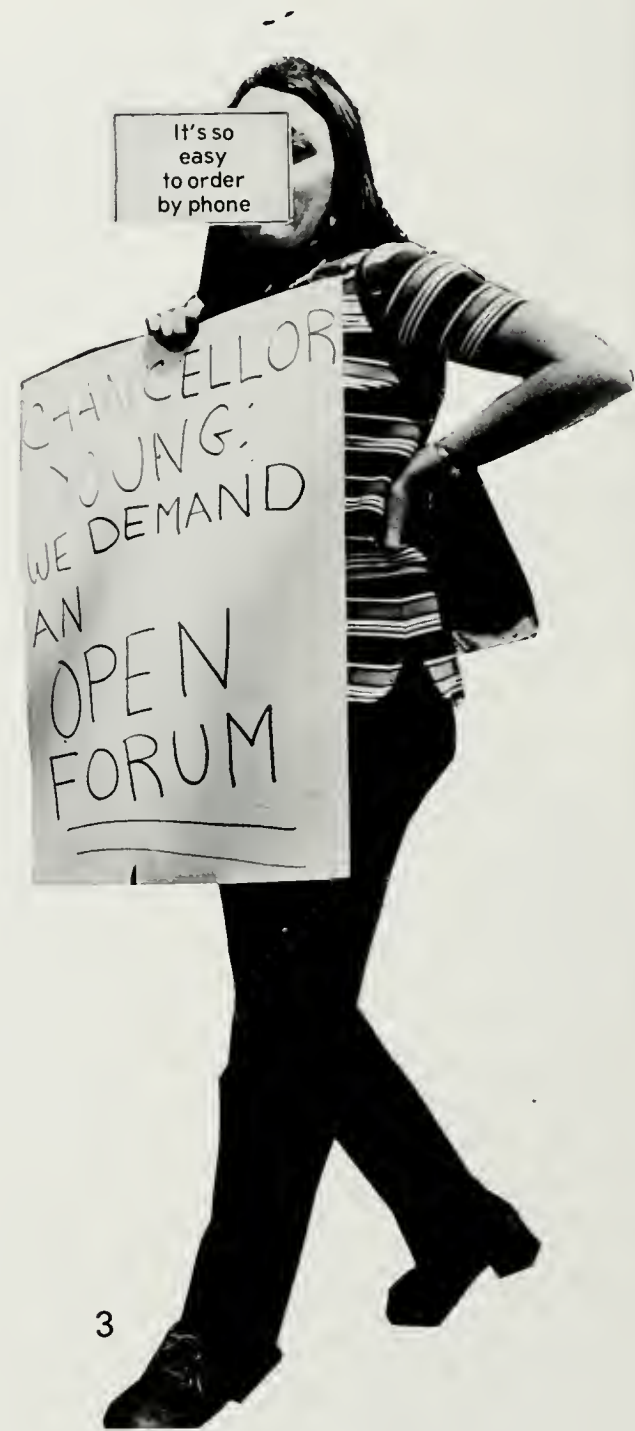 It's so
easy
to order
by phone
CHANCELLOR
YOUNG:
WE DEMAND
AN
OPEN
FORUM
3